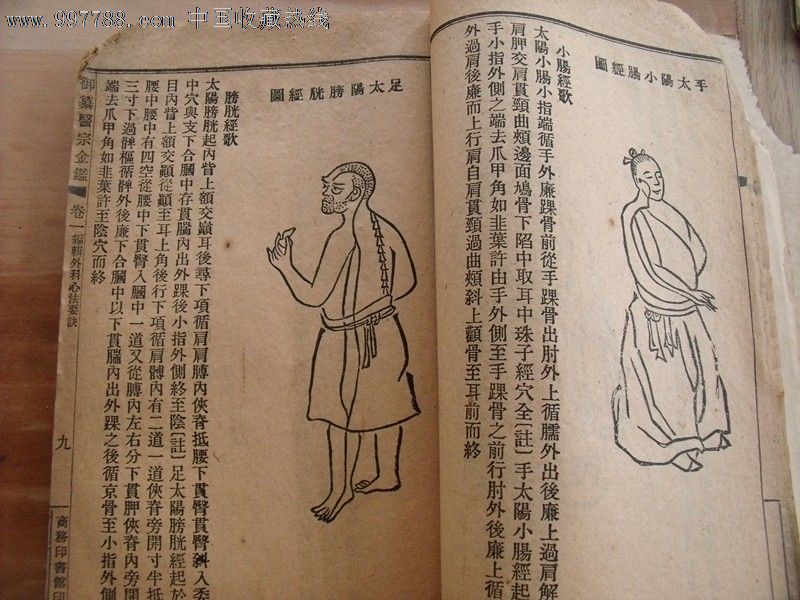 www.997788.com 中国收藏热线
手太陽小腸經圖
小腸經歌
太陽小腸小指端循手外廉踝骨前從手踝骨出肘外上循臑外出後廉上過肩解
肩胛交肩貫頸曲頰邊面鳩骨下陷中取耳中珠子經穴全〔註〕手太陽小腸經起
手小指外側之端去爪甲角如韭葉許由手外側至手踝骨之前行肘外後廉上循
外過肩後廉而上行肩自肩貫頸過曲頰斜上顴骨至耳前而終
足太陽膀胱經圖
膀胱經歌
太陽膀胱起內眥上額交巔耳後尋下項循肩肩膊內俠脊抵腰下貫臀貫臀斜入委
中穴與支下合膕中存貫腨內出外踝後小指外側終至陰〔註〕足太陽膀胱經起於
目內眥上額交巔從巔至耳上角後行下項循肩髆內有二道一道俠脊旁開寸半抵
腰中腰中有四空從腰中下貫臀入膕中一道又從膊內左右分下貫胛俠脊內旁開
三寸下過髀樞循髀外後廉下合膕中以下貫腨內出外踝之後循京骨至小指外側
端去爪甲角如韭葉許至陰穴而終
御纂醫宗金鑑 卷一 編輯外科心法要訣
九
商務印書館印